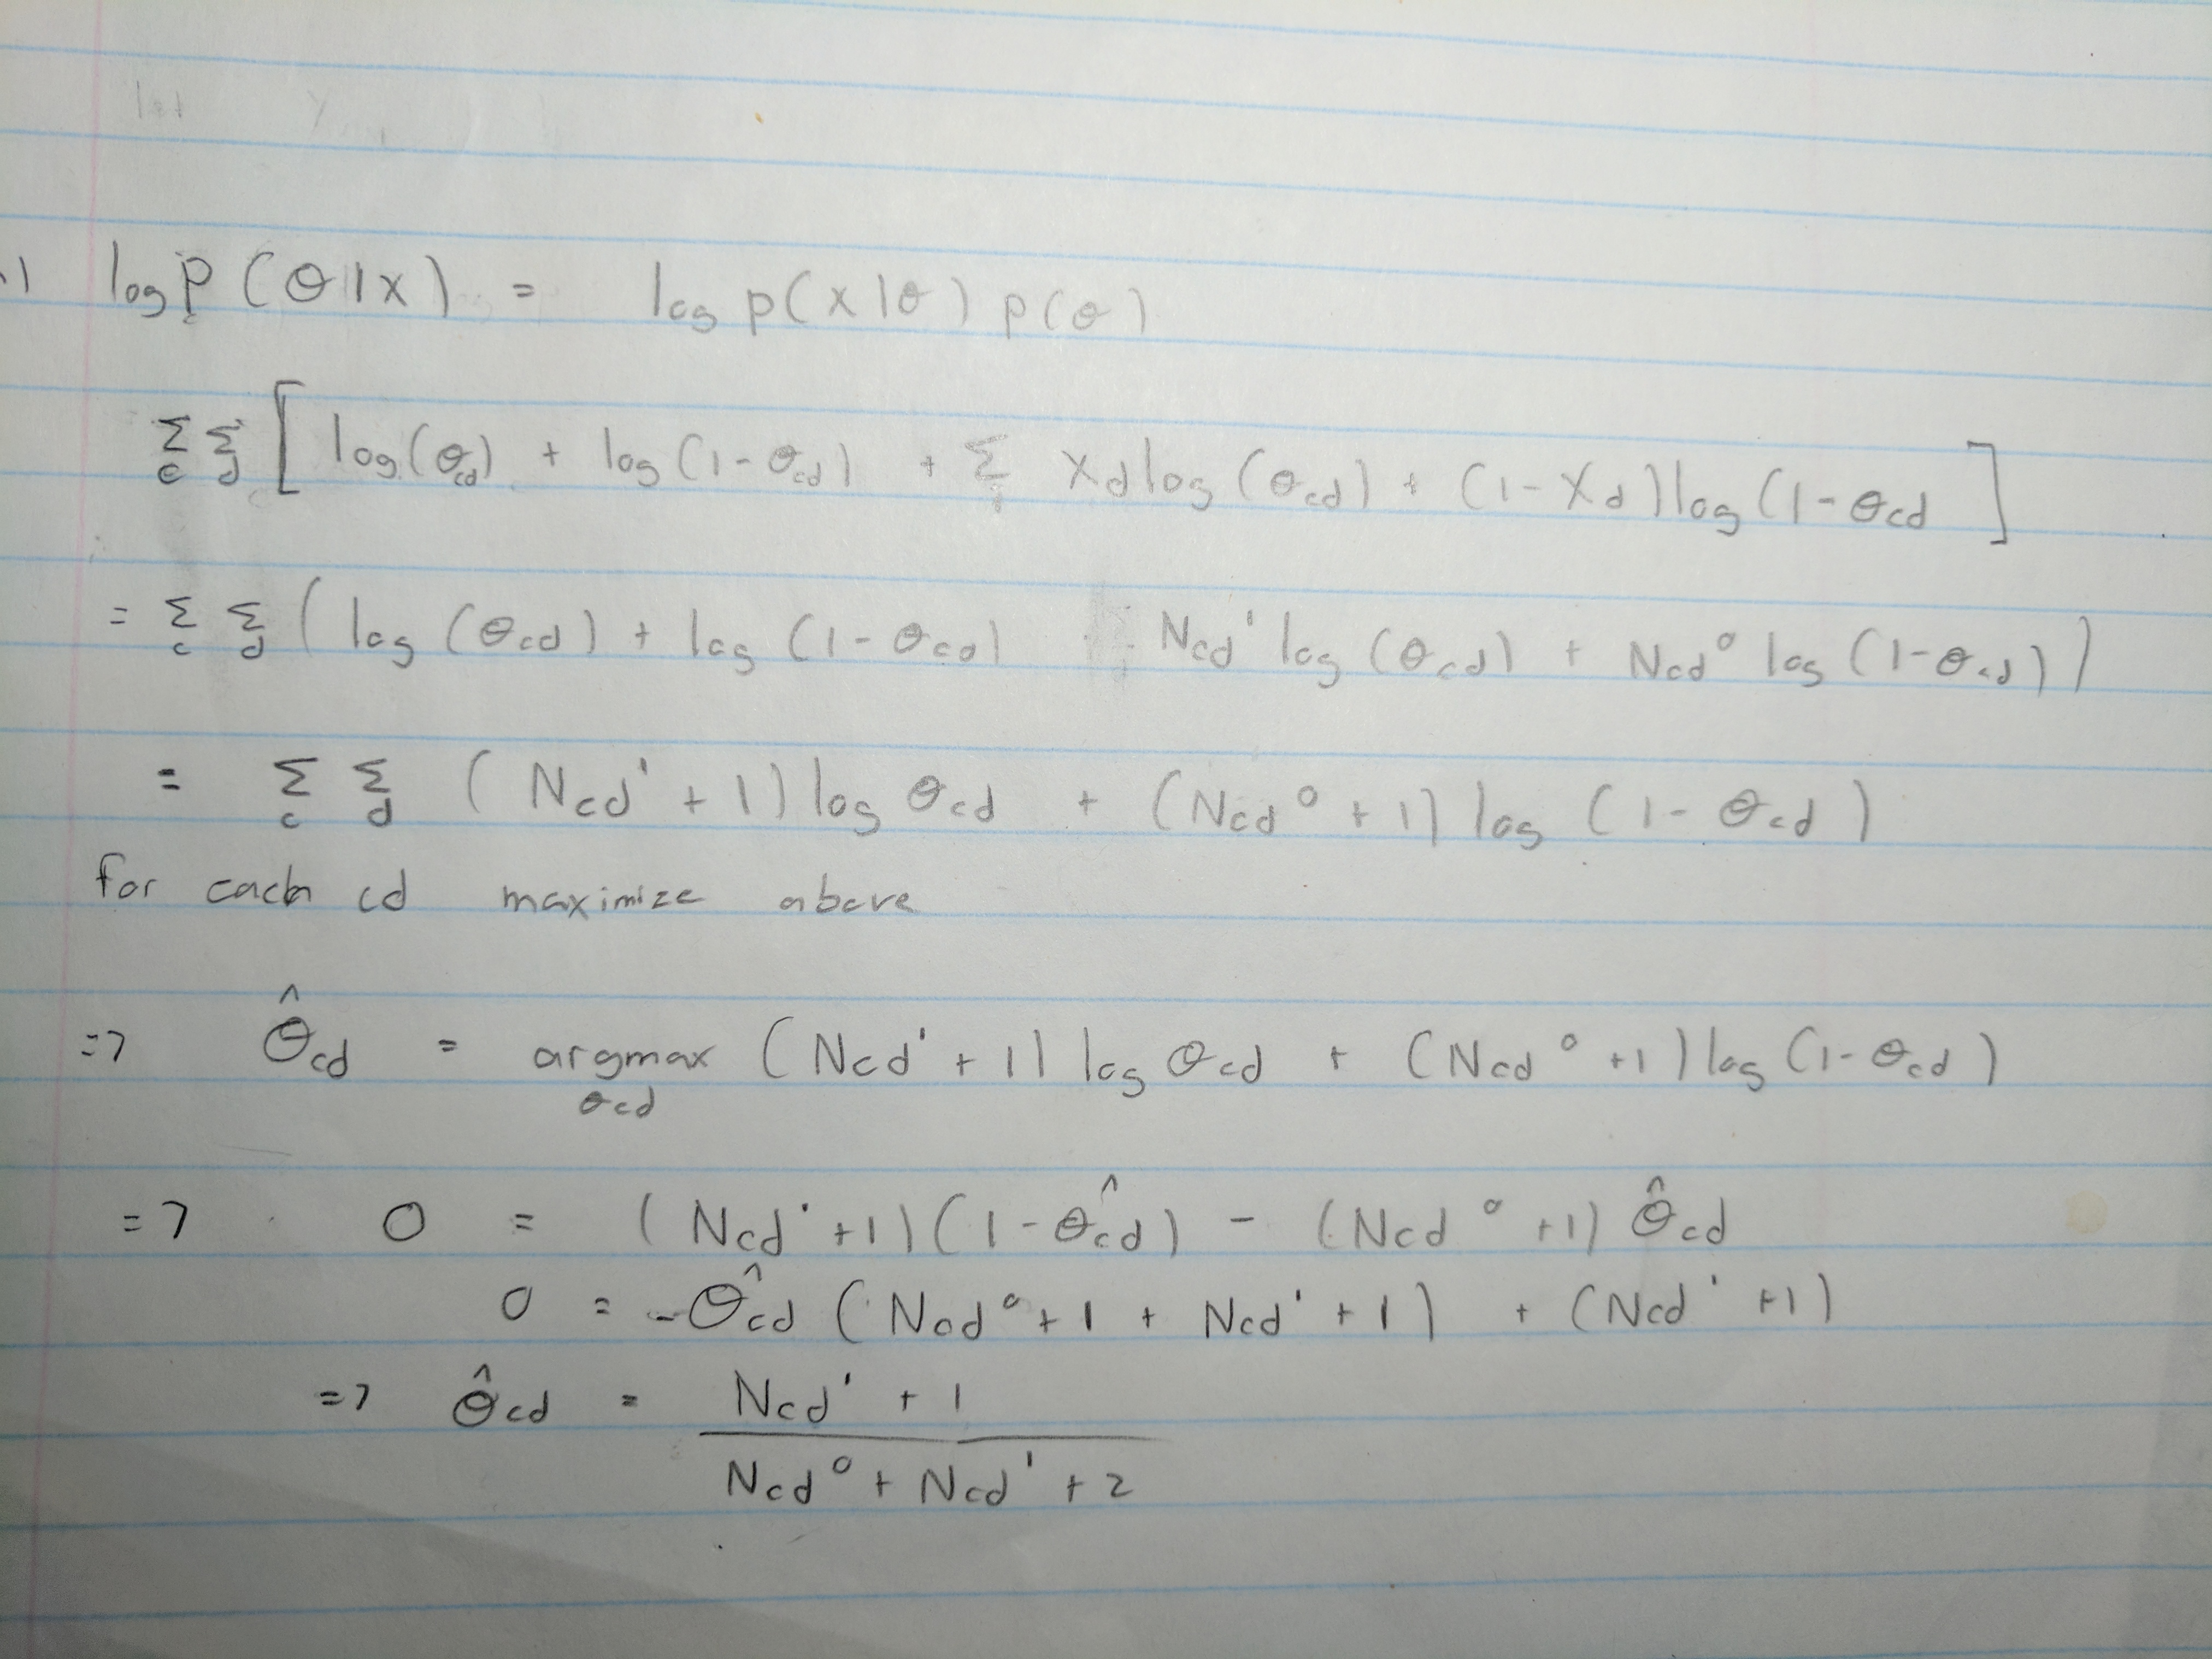 let
.1 log P(θ|x) = log p(x|θ) p(θ)
Σ_c Σ_d [ log(θ_cd) + log(1-θ_cd) + Σ_i X_d log(θ_cd) + (1-X_d) log(1-θ_cd ]
= Σ_c Σ_d ( log(θ_cd) + log(1-θ_cd) N_cd¹ log(θ_cd) + N_cd⁰ log(1-θ_cd) )
= Σ_c Σ_d (N_cd¹ + 1) log θ_cd + (N_cd⁰ + 1) log (1-θ_cd)
for each cd maximize above
=> θ̂_cd = argmax_θcd (N_cd¹ + 1) log θ_cd + (N_cd⁰ + 1) log (1-θ_cd)
=> 0 = (N_cd¹ + 1)(1-θ̂_cd) - (N_cd⁰ + 1) θ̂_cd
0 = -θ̂_cd (N_cd⁰ + 1 + N_cd¹ + 1) + (N_cd¹ + 1)
=> θ̂_cd = N_cd¹ + 1
N_cd⁰ + N_cd¹ + 2